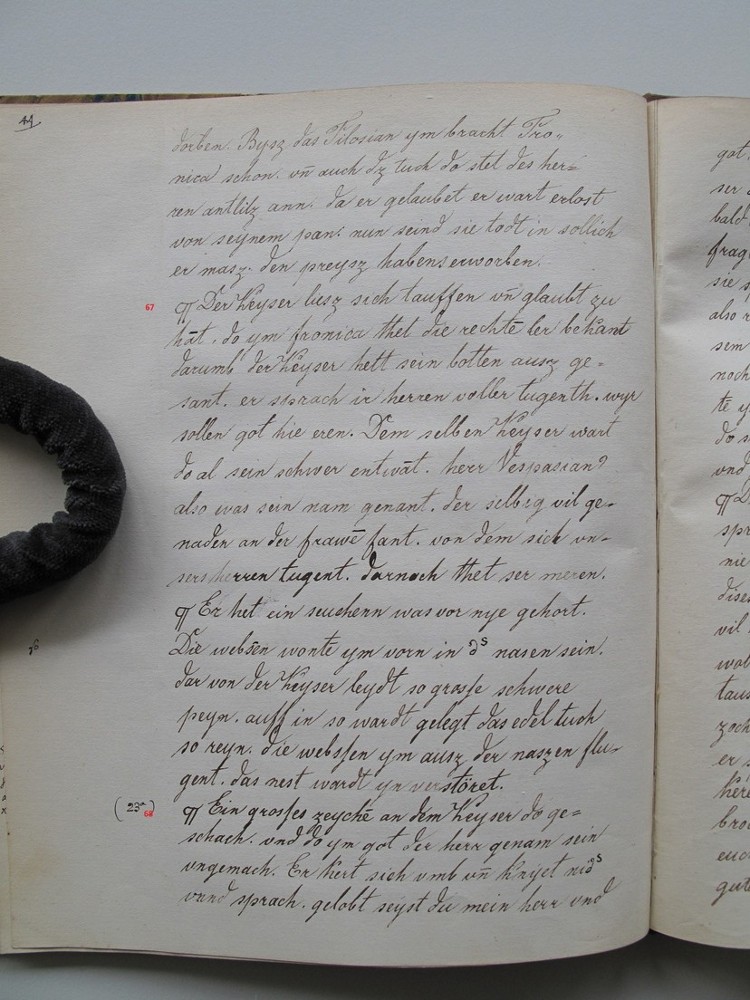 44
dorben. Bysz das Tilosian ym bracht Fro„
nica schon. vn̄ auch dz tuch do stet des her=
ren antlitz ann. da er gelaubet er wart erlost
von seynem pan. nun seind sie todt in sollich
er masz. den preysz habens erworben.
67
¶ Der Keyser liesz sich tauffen vn̄ glaubt zu
hāt. do ym fronica thet die rechtē ler bekānt
darumb der Keyser hett sein botten ausz ge=
sant. er sprach ir herren voller tugenth. wyr
sollen got hie eren. Dem selben Keyser wart
do al sein schwer entwāt. herr Vespasian9
also was sein nam genant. der selbig vil ge=
naden an der frawē fant. von dem sich vn=
sers herren tugent. darnach thet ser meren.
¶ Er het ein seuchenn was vor nye gehort.
Die websen wonte ym vorn in ds nasen sein.
dar von der Keyser leydt so grosse schwere
peyn. auff in so wardt gelegt das edel tuch
so reyn. die webssen ym ausz der naszen flu=
gent. das nest wardt yn verstöret.
(23a)
68
¶ Ein grosses zeychē an dem Keyser do ge=
schach. vnd do ym got der herr genam sein
vngemach. Er kert sich vmb vn̄ knyet nids
vund sprach. gelobt seyst du mein herr vnd
got
ser
bald
frag
sie s
also
sem
noch
te y
do s
vnd
spr
nie
dises
vil
wol
taus
zoch
er s
here
bro
euc
gute